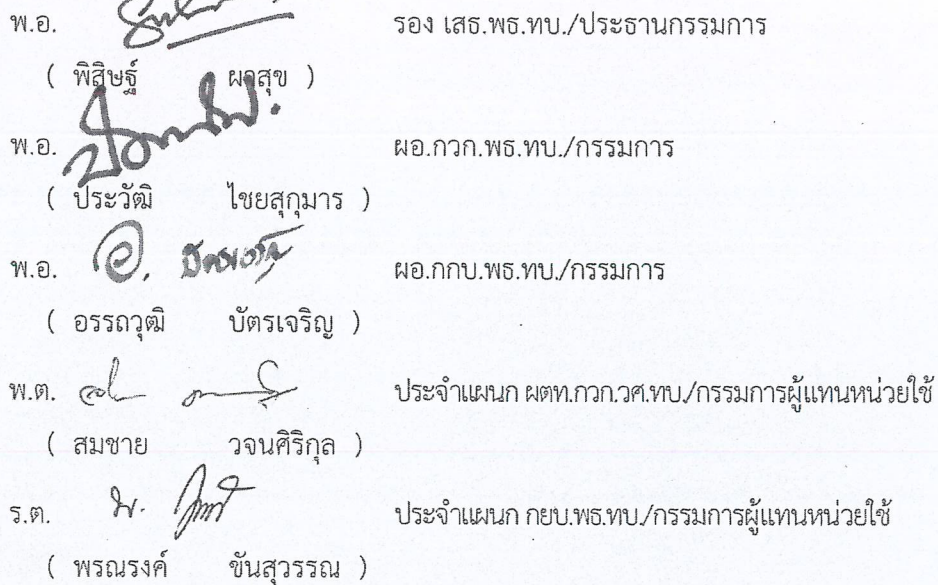 พ.อ. รอง เสธ.พธ.ทบ./ประธานกรรมการ
( พิสิษฐ์ ผาสุข )
พ.อ. ผอ.กวก.พธ.ทบ./กรรมการ
( ประวัฒิ ไชยสุกุมาร )
พ.อ. ผอ.กกบ.พธ.ทบ./กรรมการ
( อรรถวุฒิ บัตรเจริญ )
พ.ต. ประจำแผนก ผตท.กวก.วศ.ทบ./กรรมการผู้แทนหน่วยใช้
( สมชาย วจนศิริกุล )
ร.ต. ประจำแผนก กยบ.พธ.ทบ./กรรมการผู้แทนหน่วยใช้
( พรณรงค์ ขันสุวรรณ )